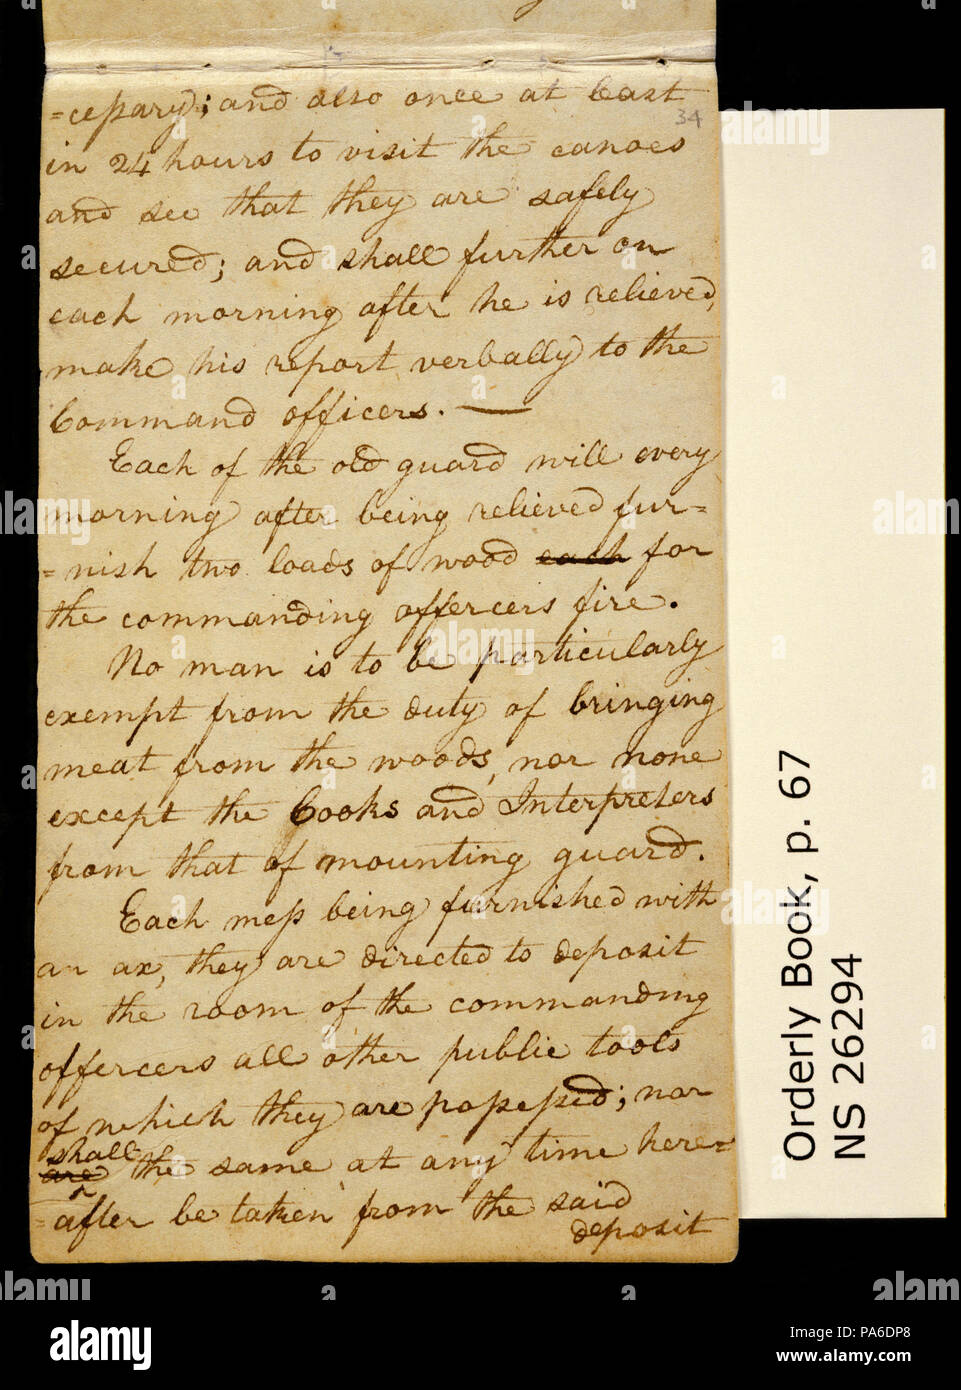 =cessary; and also once at least
34
in 24 hours to visit the canoes
and see that they are safely
secured; and shall further on
each morning after he is relieved,
make his report verbally to the
Command officers. —
Each of the old guard will every
morning after being relieved fur=
=nish two loads of wood each for
the commanding offercers fire.
No man is to be particularly
exempt from the duty of bringing
meat from the woods, nor none
except the Cooks and Interpreters
from that of mounting guard.
Each mess being furnished with
an ax, they are directed to deposit
in the room of the commanding
offercers all other public tools
of which they are possessed; nor
shall
are the same at any time here=
=after be taken from the said
deposit
Orderly Book, p. 67
NS 26294
alamy
alamy
Image ID: PA6DP8
www.alamy.com